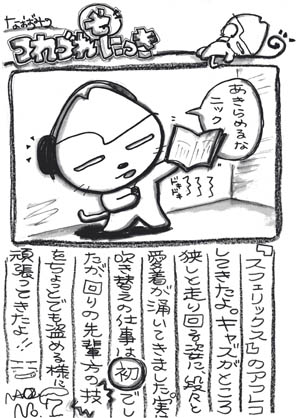 なおやの
つれづれモにっき
あきらめるな
ニック
ドキドキ
『スフェリックス』のアフレコ
してきたよ。キャスがところ
狭しと走り回る姿に、段々と
愛着が涌いてきました。実は
吹き替えの仕事は初でし
たが回りの先輩方の技
をちょこっとでも盗める様に
頑張ってきたよ!!